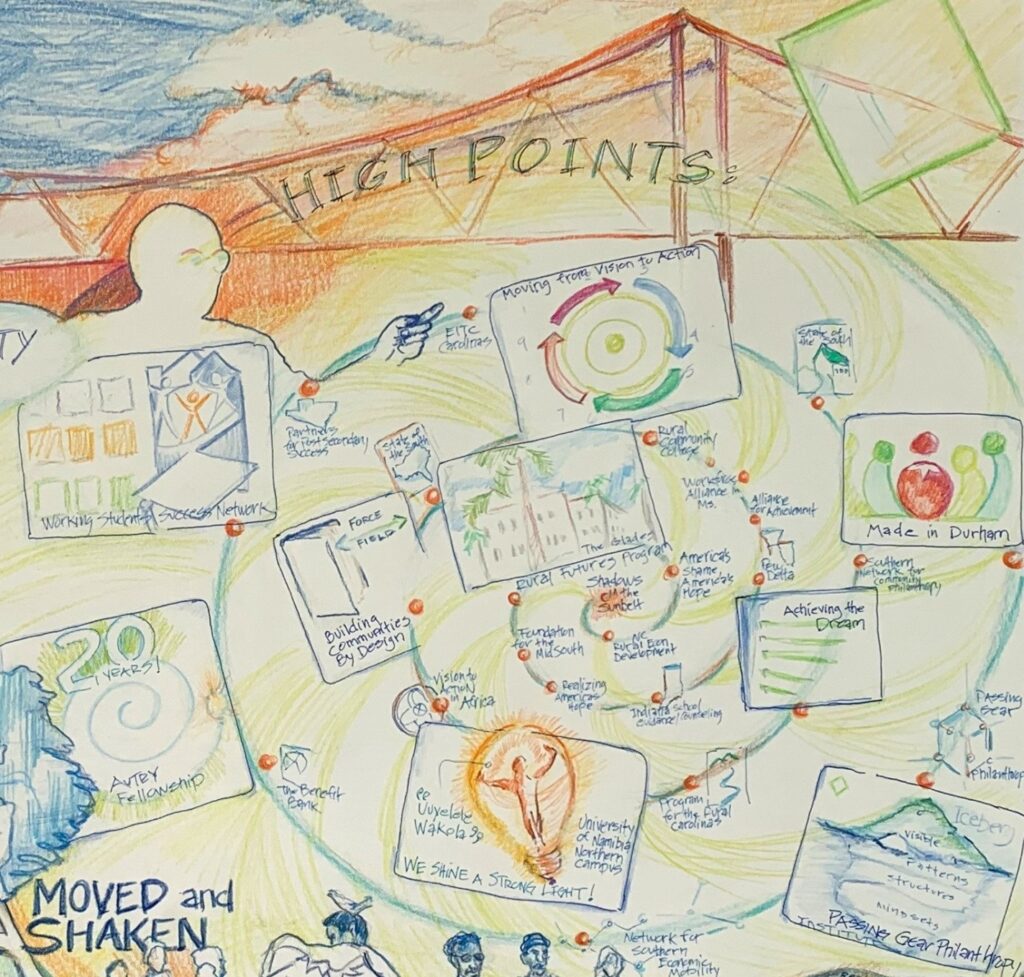 HIGH POINTS:
TY
Moving from Vision to Action
9
4
5
7
EITC
Carolinas
State of
the South
Partners
for Postsecondary
Success
State of
the South
Rural
Community
College
Workforce
Alliance in
Ms.
Alliance
for Achievement
Made in Durham
Working Students Success Network
FORCE
FIELD
The Glades
Rural Futures Program
Shadows
in the
Sunbelt
America's
Shame,
America's
Hope
Delta
Southern
Network for
community
Philanthropy
Building
Communities
By Design
Achieving the
Dream
Foundation
for the
MidSouth
NC
Rural Econ.
Development
20
YEARS!
AUTRY
Fellowship
Vision to
Action
in Africa
Realizing
America's
Hope
Indiana School
Guidance/Counseling
Passing
Gear
Philanthropy
The Benefit
Bank
Program
for the Rural
Carolinas
ee
Uuyelele
Wakola
University
of Namibia
Northern
Campus
WE SHINE A STRONG LIGHT!
Iceberg
Visible
Patterns
structures
mindsets
Passing Gear Philanthropy
INSTITUTE
MOVED and
SHAKEN
Network for
Southern
Economic
Mobility